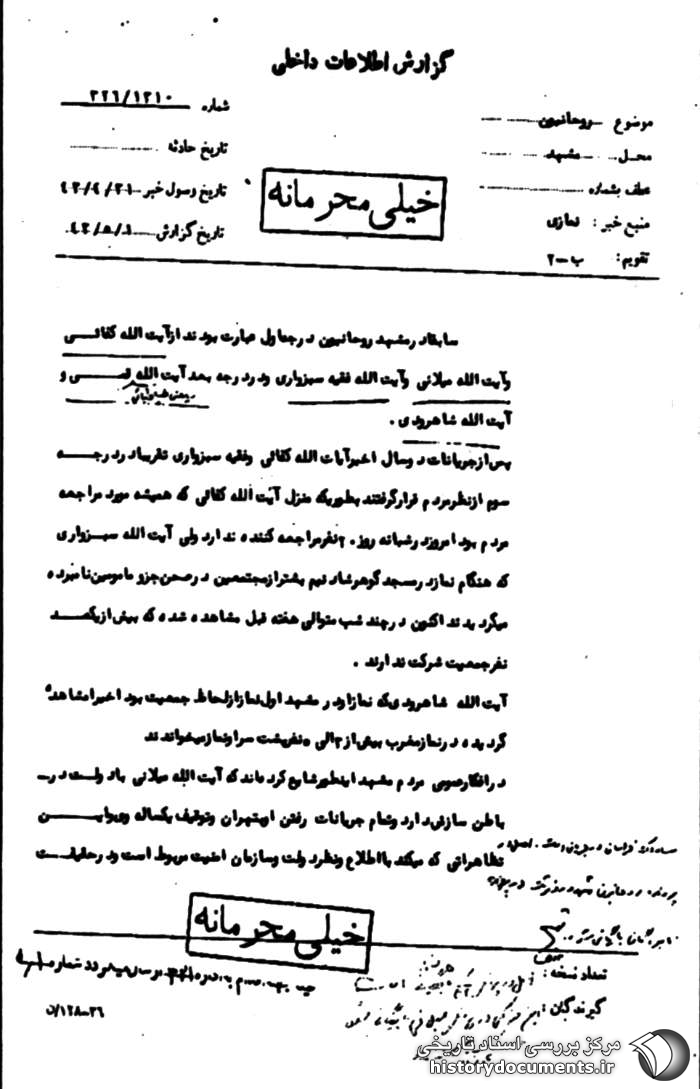 گزارش اطلاعات داخلی
موضوع روحانیون
شماره ۳۲۶/۱۲۱۰
محل مشهد
تاریخ حادثه
عطف بشماره
تاریخ وصول خبر ۴۳/۴/۳۱
منبع خبر : نمازی
تاریخ گزارش ۴۳/۸/۱
تقویم : ب-۲
خیلی محرمانه
سابقا در مشهد روحانیون درجه اول عبارت بودند از آیت الله کفائی
و آیت الله میلانی و آیت الله فقیه سبزواری و در درجه بعد آیت الله قمی و
آیت الله شاهرودی .
پس از جریانات دو سال اخیر آیات الله کفائی و فقیه سبزواری تقریبا در درجه
سوم از نظر مردم قرار گرفتند بطوریکه منزل آیت الله کفائی که همیشه مورد مراجعه
مردم بود امروز در شبانه روز نفر مراجعه کننده ندارد ولی آیت الله سبزواری
که هنگام نماز در مسجد گوهرشاد نیم بیشتر از مجتمعین در صحن جزو مامومین نامبرده
میگردیدند اکنون در چند شب متوالی هفته قبل مشاهده شده که بیش از یکصد
نفر جمعیت شرکت ندارند .
آیت الله شاهرودی که نماز او در مشهد اول نماز از لحاظ جمعیت بود اخیرا مشاهده
گردیده در نماز مغرب بیش از چهل نفر پشت سر او نماز میخواندند
در افکار عمومی مردم مشهد اینطور شایع کرده اند که آیت الله میلانی با دولت در
باطن سازش دارد و تمام جریانات رفتن او بتهران و توقیف یکساله وی و این
تظاهراتی که میکند با اطلاع و نظر دولت و سازمان امنیت مربوط است و در حقیقت
خیلی محرمانه
تعداد نسخه :
گیرندگان :
۳۶-۱۲۸/ن
مرکز بررسی اسناد تاریخی
historydocuments.ir